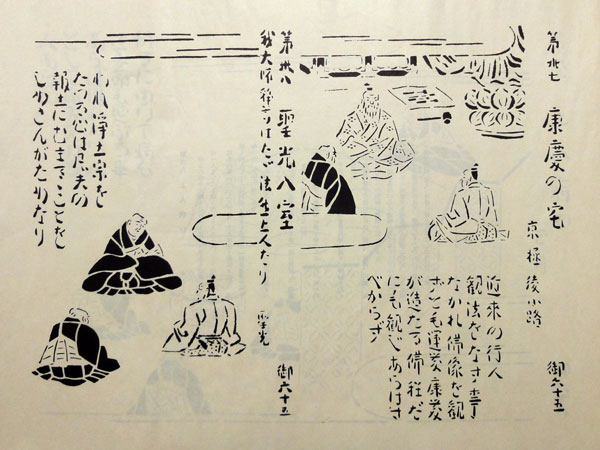 第卅七 康慶の宅 京極 綾小路 御六十五
近来の行人
観法をなす事
なかれ佛像を観
ずとも運慶康慶
が造たる佛程だ
にも観じあらはす
べからず
第卅八 聖光入室 御六十五
我大師釋尊はたゞ法然上人なり 聖光
われ浄土宗を
たつる心は凡夫の
報土にむまるゝことを
しめさんがためなり